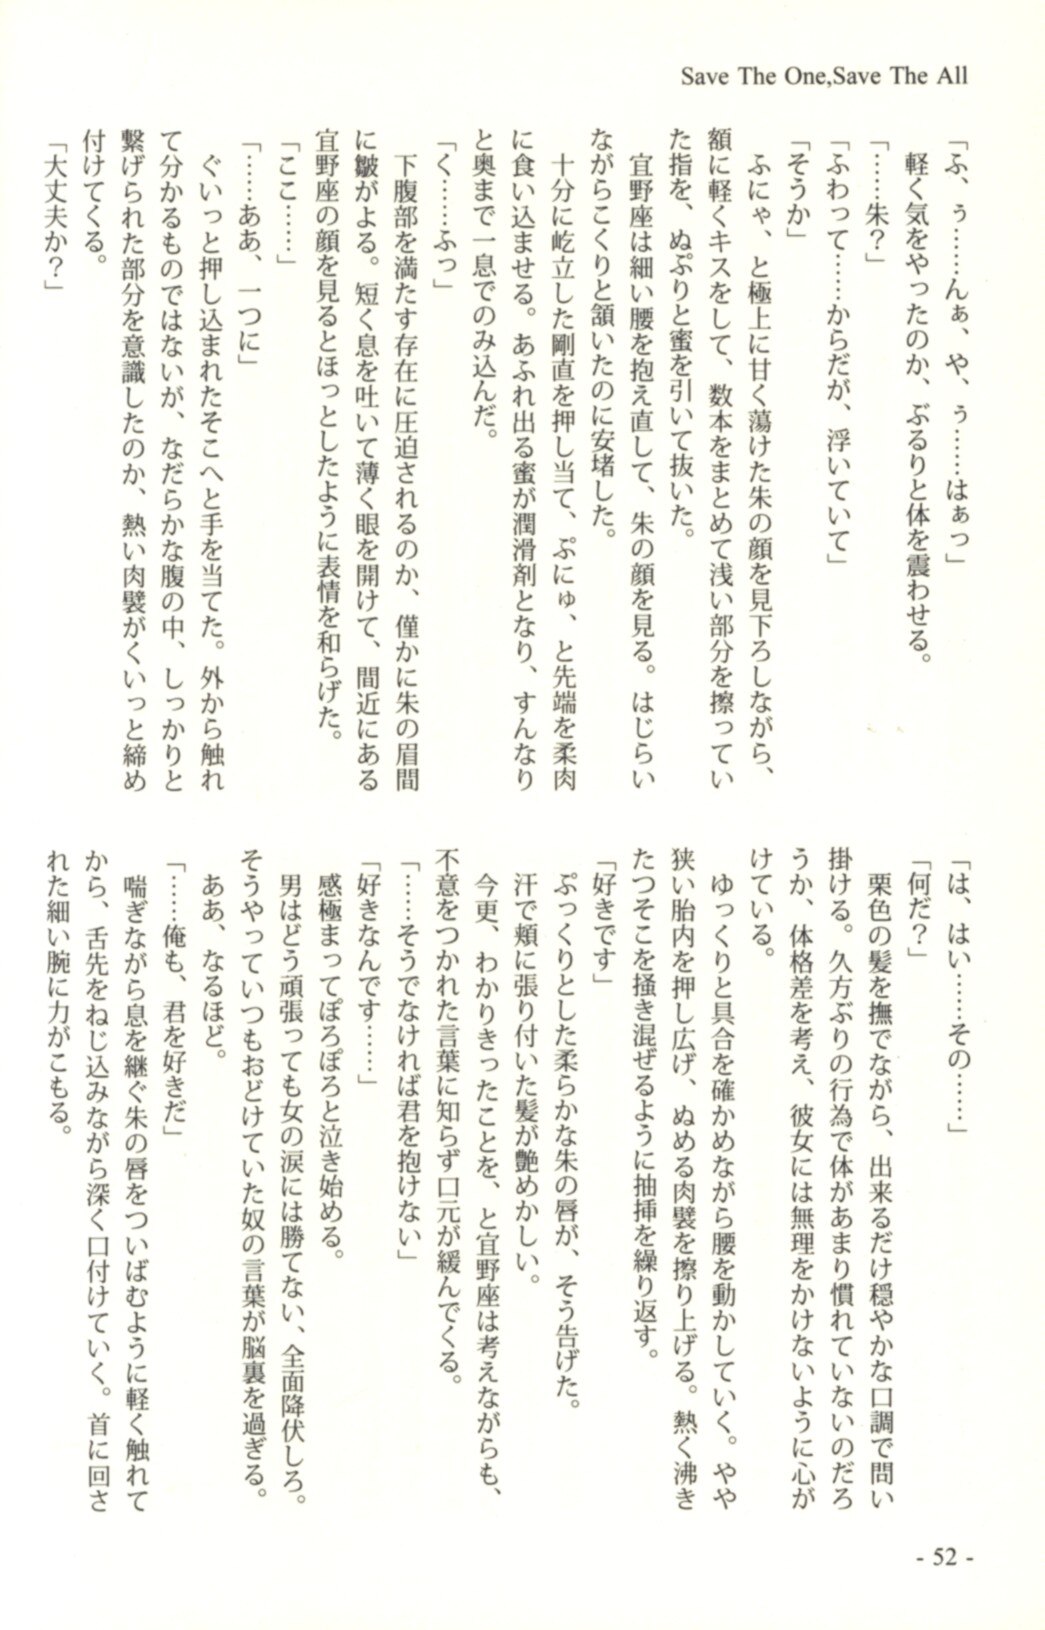 Save The One,Save The All
「ふ、ぅ……んぁ、や、ぅ……はぁっ」
軽く気をやったのか、ぶるりと体を震わせる。
「……朱？」
「ふわって……からだが、浮いていて」
「そうか」
ふにゃ、と極上に甘く蕩けた朱の顔を見下ろしながら、
額に軽くキスをして、数本をまとめて浅い部分を擦ってい
た指を、ぬぷりと蜜を引いて抜いた。
宜野座は細い腰を抱え直して、朱の顔を見る。はじらい
ながらこくりと頷いたのに安堵した。
十分に屹立した剛直を押し当て、ぷにゅ、と先端を柔肉
に食い込ませる。あふれ出る蜜が潤滑剤となり、すんなり
と奥まで一息でのみ込んだ。
「く……ふっ」
下腹部を満たす存在に圧迫されるのか、僅かに朱の眉間
に皺がよる。短く息を吐いて薄く眼を開けて、間近にある
宜野座の顔を見るとほっとしたように表情を和らげた。
「ここ……」
「……ああ、一つに」
ぐいっと押し込まれたそこへと手を当てた。外から触れ
て分かるものではないが、なだらかな腹の中、しっかりと
繋げられた部分を意識したのか、熱い肉襞がくいっと締め
付けてくる。
「大丈夫か？」
「は、はい……その……」
「何だ？」
栗色の髪を撫でながら、出来るだけ穏やかな口調で問い
掛ける。久方ぶりの行為で体があまり慣れていないのだろ
うか、体格差を考え、彼女には無理をかけないように心が
けている。
ゆっくりと具合を確かめながら腰を動かしていく。やや
狭い胎内を押し広げ、ぬめる肉襞を擦り上げる。熱く沸き
たつそこを掻き混ぜるように抽挿を繰り返す。
「好きです」
ぷっくりとした柔らかな朱の唇が、そう告げた。
汗で頬に張り付いた髪が艶めかしい。
今更、わかりきったことを、と宜野座は考えながらも、
不意をつかれた言葉に知らず口元が緩んでくる。
「……そうでなければ君を抱けない」
「好きなんです……」
感極まってぽろぽろと泣き始める。
男はどう頑張っても女の涙には勝てない、全面降伏しろ。
そうやっていつもおどけていた奴の言葉が脳裏を過ぎる。
ああ、なるほど。
「……俺も、君を好きだ」
喘ぎながら息を継ぐ朱の唇をついばむように軽く触れて
から、舌先をねじ込みながら深く口付けていく。首に回さ
れた細い腕に力がこもる。
- 52 -